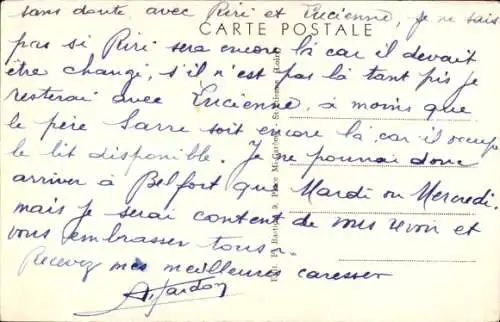 sans doute avec Riri et Lucienne, je ne sais
CARTE POSTALE
pas si Riri sera encore là car il devait
être changé, s'il n'est pas là tant pis je
resterai avec Lucienne, à moins que
le père Sarre soit encore là car il occupe
le lit disponible. Je ne pourrai donc
arriver à Belfort que Mardi ou Mercredi.
mais je serai content de vous revoir et
vous embrasser tous.
Recevez mes meilleures caresses